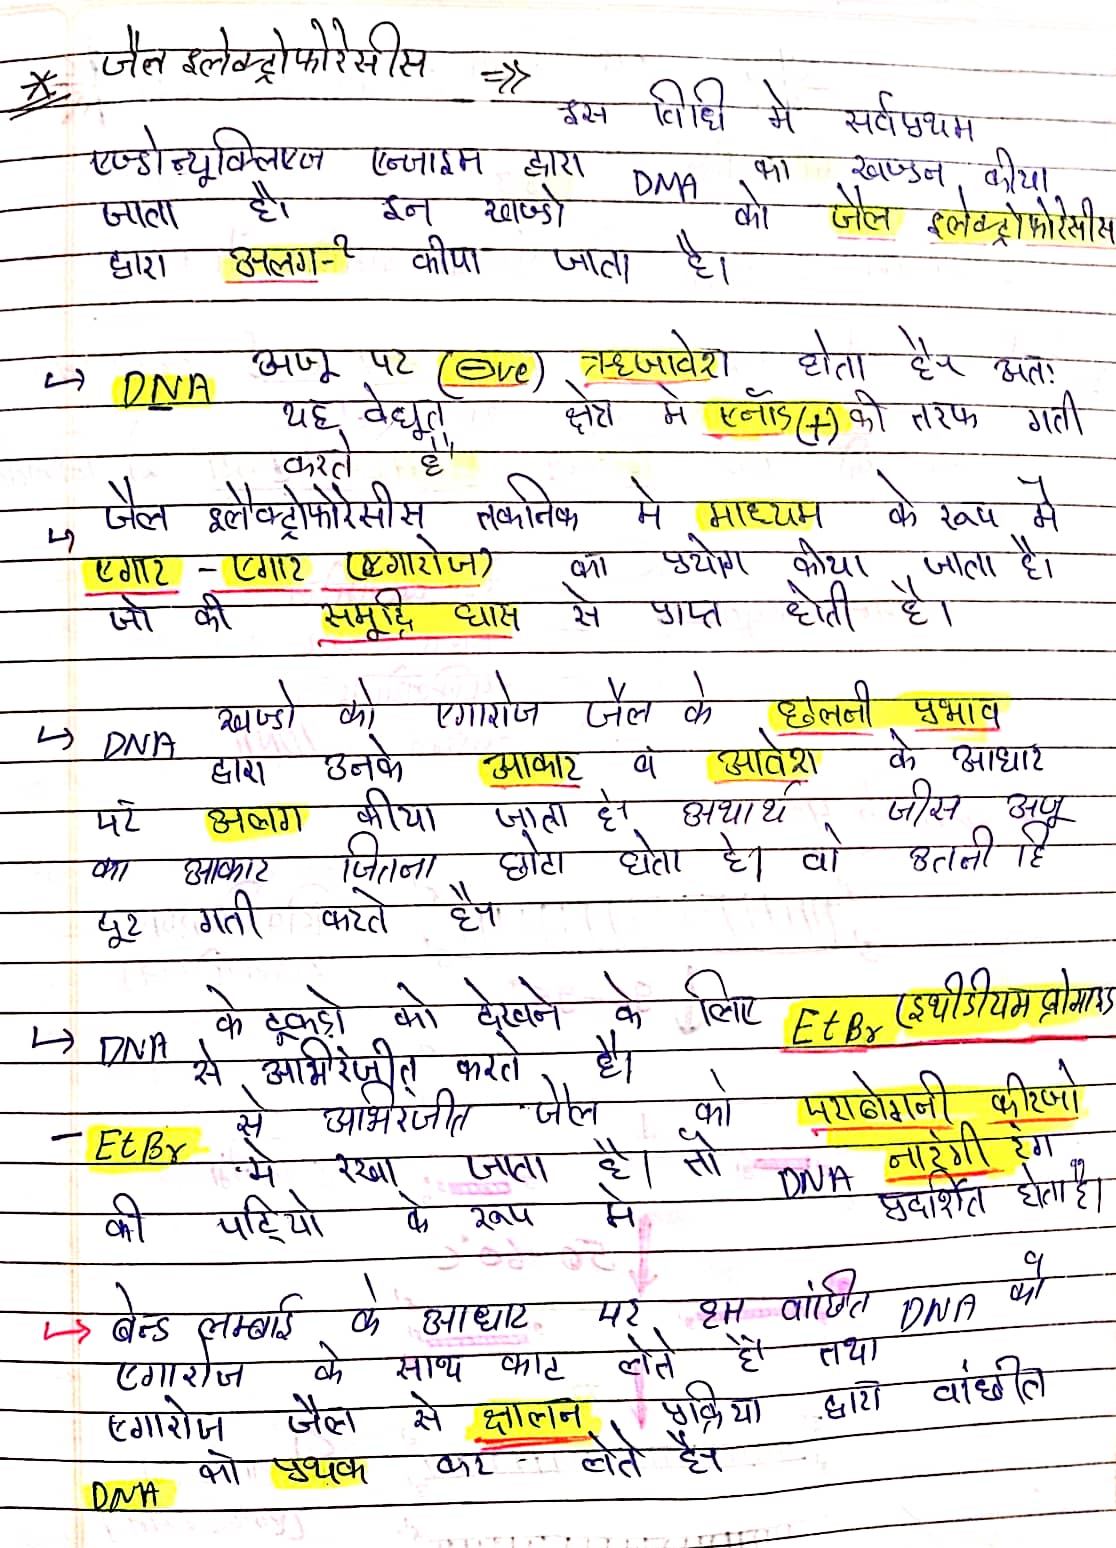 * जैल इलेक्ट्रोफोरेसीस ⇒
इस विधि मे सर्वप्रथम
एण्डोन्यूक्लिएज एन्जाइम द्वारा DNA का खण्डन कीया
जाता है। इन खण्डो को जैल इलेक्ट्रोफोरेसीस
द्वारा अलग-२ कीया जाता है।
↳ DNA अणू पर (⊖ve) ऋणावेश होता है। अतः
यह वेधूत क्षेत्र मे एनॉड(+) की तरफ गती
करते है
↳ जैल इलैक्ट्रोफोरेसीस तकनिक मे माध्यम के रूप मे
एगार - एगार (एगारोज) का प्रयोग कीया जाता है।
जो की समूद्रि घास से प्राप्त होती है।
↳ DNA खण्डो को एगारोज जैल के छलनी प्रभाव
द्वारा उनके आकार व आवेश के आधार
पर अलग कीया जाता है। अथार्थ जीस अणू
का आकार जितना छोटा होता है। वो उतनी हि
दूर गती करते है।
↳ DNA के टूकड़ो को देखने के लिए EtBr (इथीडीयम ब्रोमाइड
से अभिरंजीत् करते है।
- EtBr से अभिरंजीत जैल को पराबेंगनी कीरणो
मे रखा जाता है। तो DNA नारंगी रंग
की पट्टियो के रूप मे प्रदर्शित होता है।
↳ बेन्ड लम्बाई के आधार पर हम वांछित DNA को
एगारोज के साथ काट लेते है तथा
एगारोज जैल से क्षालन प्रक्रिया द्वारा वांछीत
DNA को प्रथक कर लेते है।